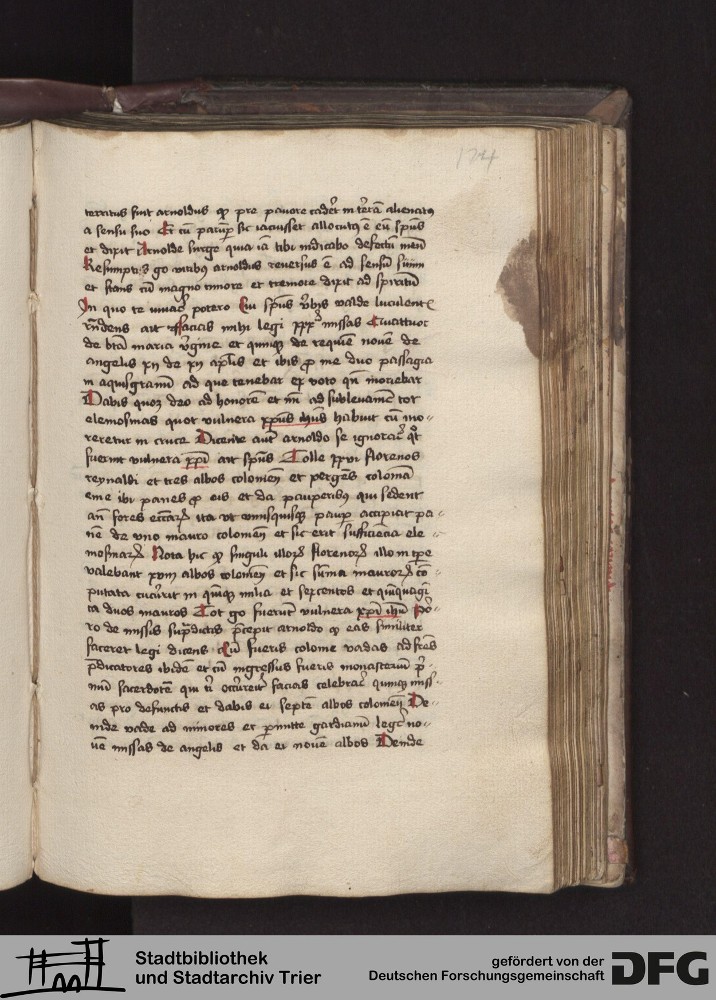 174
territus fuit arnoldus qͥ pre pauore cadēt in t'rā alienatꝰ
a sensu suo Et cū parūp sic iacuisset allocutꝰ ē eū spūs
et dixit Arnolde surge quia iā tibi indicabo defectū meū
Resumptis go viribꝰ arnoldus reuersus ē ad sensū suum
et stans cū magno timore et tremore dixit ad spiritū
In quo te iuuaē potero Cui spūs v'bis valde luculent'
rn̄dens ait ffacias mihi legi missas
de btā maria v'gine et quinqꝫ de requiē nouē de
angelis xij de xij aplīs et ibis ꝓ me duo passagia
in aquisgranū ad que tenebar ex voto qn̄ moriebar
Dabis quoqꝫ deo ad honorē et m̄ ad subleuamē tot
elemosinas quot vulnera xpūs ihūs habuit cū mo-
reretur in cruce Dicente aut' arnoldo se ignorare qͦt
fuerint vulnera xpī ait spūs Tolle xxvi florenos
reynaldi et tres albos colonien̄ et pergens coloniā
eme ibi panes ꝓ eis et da pauperibꝫ qui sedent
an̄ fores eccāꝝ ita vt vnusquisqꝫ paup accipiat pa-
nē de vno mauro colonien̄ et sic erit sufficiēcia ele-
mosinaꝝ Nota hic qͥ singuli illoꝝ florenoꝝ illo in tpe
valebant xviij albos colonien̄ et sic sūma mauroꝝ cō-
putata cucurit in quinqꝫ milia et sexcentos et quīquagī
ta duos mauros Tot go fuerūt vulnera xpī ihū Po-
ro de missis sup̄dictis p̄cepit arnoldo qͥ eas similiter
faceret legi dicens Cū fueris colonie vadas ad frēs
p̄dicatores ibidē et cū ingressus fueris monasteriū p̄-
mū sacerdotē qui t' occ'rerit facias celebrare quinqꝫ miss-
as pro defunctis et dabis ei septē albos colonien̄ De-
inde vade ad minores et p̄mitte gardianū lege no-
uē missas de angelis et da ei nouē albos Deinde
Stadtbibliothek
und Stadtarchiv Trier
gefördert von der
Deutschen Forschungsgemeinschaft
DFG